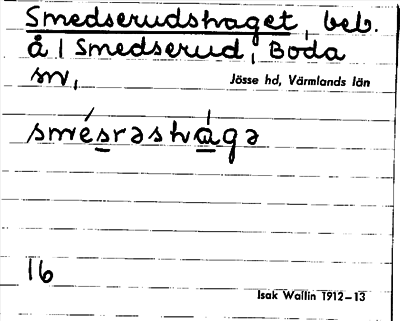 Smedserudshaget, beb.
å 1 Smedserud, Boda
sn, Jösse hd, Värmlands län
smésrəshágə
16
Isak Wallin 1912–13